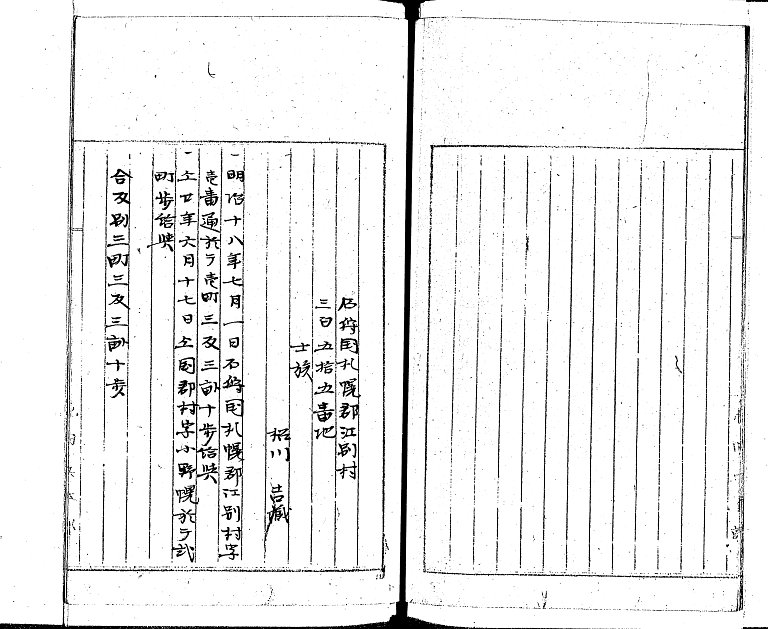 石狩国札幌郡江別村
三百五拾五番地
士族
稲川 吉蔵
一明治十八年七月一日石狩国札幌郡江別村字
壱番通於テ壱町三反三畝十歩給与
一仝廿年六月十七日仝国郡村字小野幌於テ弐
町歩給与
合反別三町三反三畝十歩